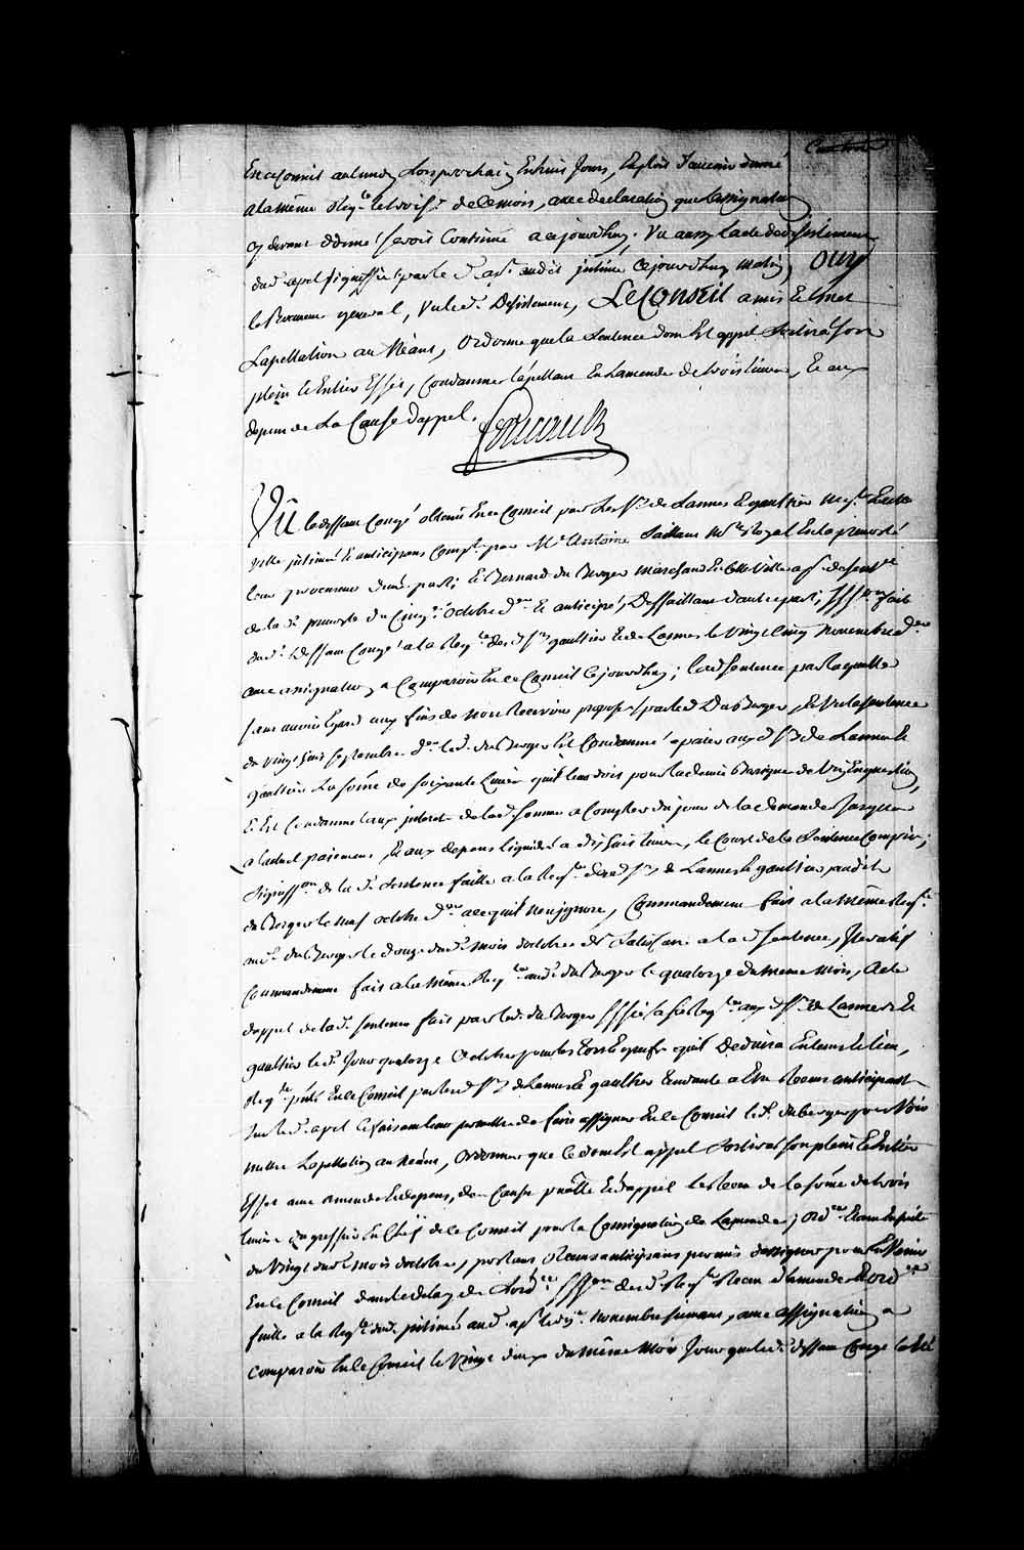 En ce Conseil au lundy Lors prochain Enhuit Jours, Exploit d'avenir donné
a la même Reqte le trois de ce mois, avec declaration que l'assignation
cy devant donnée seroit Continué a cejourd'huy. Vu aussy l'acte de desistement
dud. apel signiffié par led. apt. audit jntimé cejourd'huy matin, Ouy
le Procureur general, Vu led. Desistement, Le Conseil a mis Et met
L'apellation au Néant, Ordonne que la Sentence dont Est appel Sortira son
plein Et Entier Effet, Condamne l'apellant En Lamende de trois Livres, Et aux
depens de La Cause d'appel.
Vû le deffaut Congé obtenu En ce Conseil par Les Srs de Lannes Et gaultier Negts En cette
ville jntimés Et anticipans Compt. par Me Antoine Saillant Nore Royal En la prevosté
leur procureur d'une part; Et Bernard du Berger Marchand En cette Ville apt. de sentce
de la d. prevosté du Cinq octobre dr Et anticipé, Deffaillant d'autre part; Siffon fait
dud. Deffaut Congé a la Reqte desd. Srs gaultier Et de Lannes le Vingt Cinq Novembre der
avec assignation a Comparoir En ce Conseil Cejourd'huy; lad. sentence par laquelle
sans avoir Egard aux fins de non Recevoir proposés par led. Du Berger, Et Vu la sentence
du Vingt Septembre der led. du Berger Est Condamné a paier auxd. Srs de Lannes Et
gaultier La sôme de soixante Livres qu'il leur doit pour la demie Barique de Vin En question,
Et Est Condamné aux jnterets de la d. somme a Compter du jour de la demande Jusqu'a
a l'actuel paiement, Et aux depens liquidés a dix huit livres, le Cout de la Sentence Compris;
Signiffon de la d. Sentence faitte a la Reqte desd. Srs de Lannes Et gaultier audit
du Berger le neuf octobre der a ce qu'il n'en jgnore, Commandement fait a la même Reqte
aud. du Berger le douze dud. mois d'octobre de Satisfaire a la d. sentence, Jteratif
Commandement fait a la même Reqte aud. du Berger le quatorze du meme mois, Acte
d'appel de lad. sentence fait par led. du Berger Siffié a sa Reqte auxd. Srs de Lannes Et
gaultier le d. Jour quatorze Octobre pour les torts Et griefs qu'il Deduira En tems Et lieu,
Reqte ptée En ce Conseil par lesd. Srs de Lannes Et gaultier tendante a Etre Recus anticipans
sur led. apel Ce faisant leur permettre de faire assigner En ce Conseil le d. du berger pour Voir
mettre L'apellation au Néant, Ordonner que ce dont Est appel Sortira son plein Et Entier
Effet avec amende Et depens, de la Cause pnalle Et d'appel Le Recu de la sôme de trois
livres du greffier En Chef de ce Conseil pour la Consignation de Lamende; Ordce Etant Ensuite
du Vingt dud. mois d'octobre, portant Recus anticipans permis d'assigner pour En Venir
En ce Conseil dans le delay de L'ordce Siffon de lad. Reqte Recu d'amende Et ordce
faitte a la Reqte desd. jntimés aud. apt. le dix Novembre suivant, avec assignation a
Comparoir En ce Conseil le Vingt deux du même Mois Jour que led. deffaut Congé a Eté